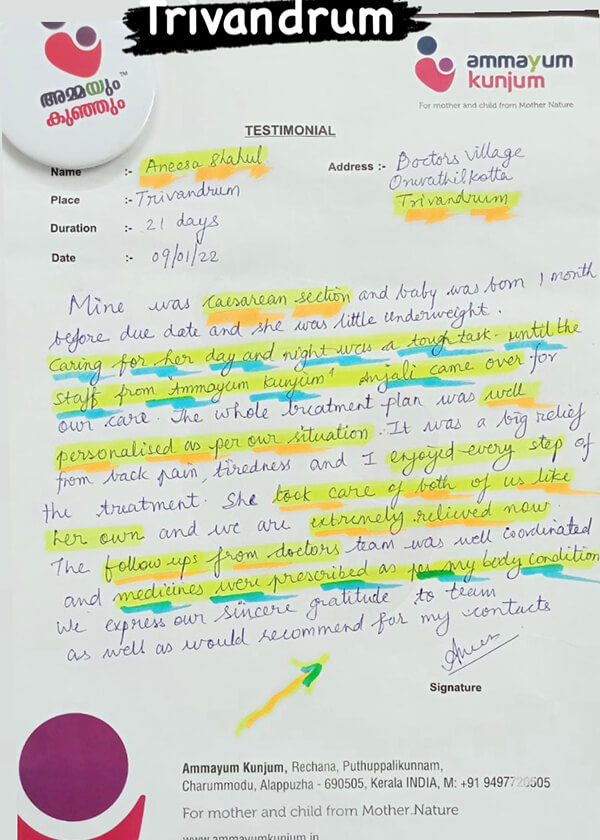 Trivandrum
അമ്മയും™
കുഞ്ഞും
ammayum
kunjum
For mother and child from Mother Nature
TESTIMONIAL
Name :- Aneesa Shahul
Place :- Trivandrum
Duration :- 21 days
Date :- 09/01/22
Address :- Doctors Village
Oruvathilkotta
Trivandrum
Mine was caesarean section and baby was born 1 month
before due date and she was little underweight.
Caring for her day and night was a tough task until the
staff from Ammayum Kunjum' Anjali came over for
our care. The whole treatment plan was well
personalised as per our situation. It was a big relief
from back pain, tiredness and I enjoyed every step of
the treatment. She took care of both of us like
her own and we are extremely relieved now.
The follow ups from doctors team was well coordinated
and medicines were prescribed as per my body condition
We express our sincere gratitude to team
as well as would recommend for my contacts
Signature
Ammayum Kunjum, Rechana, Puthuppalikunnam,
Charummodu, Alappuzha - 690505, Kerala INDIA, M: +91 9497720505
For mother and child from Mother Nature
www.ammayumkunjum.in